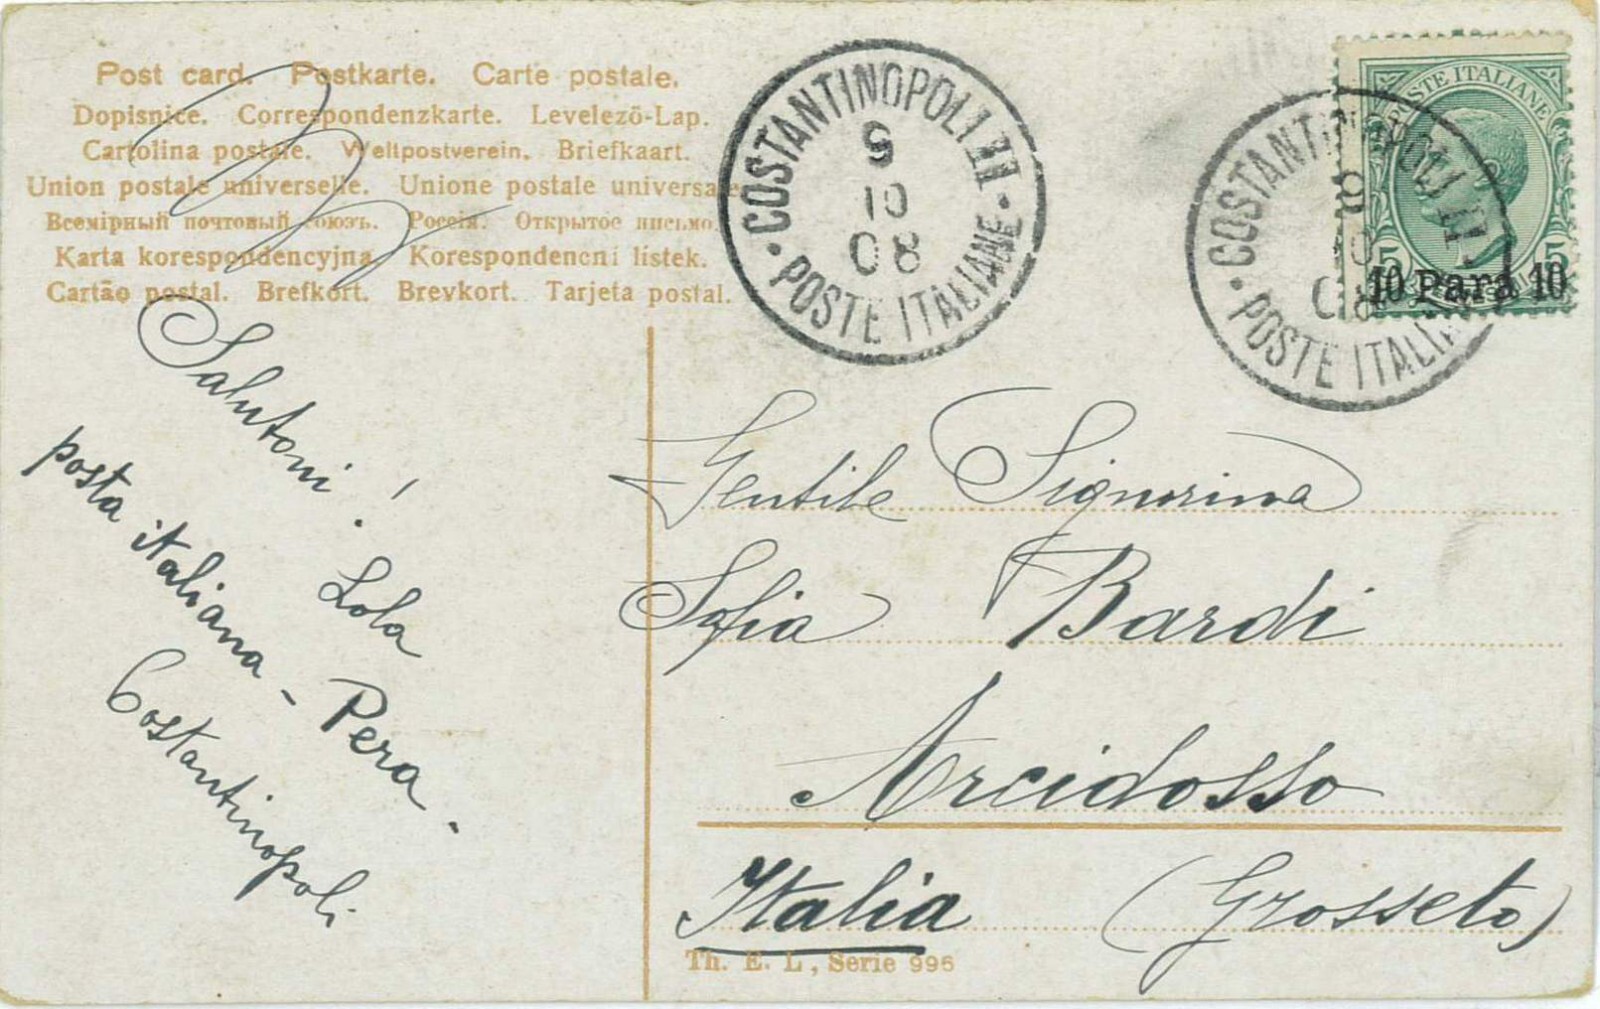 Post card. Postkarte. Carte postale.
Dopisnice. Correspondenzkarte. Levelező-Lap.
Cartolina postale. Weltpostverein. Briefkaart.
Union postale universelle. Unione postale universale
Всемірный почтовый союзъ. Россія. Открытое письмо.
Karta korespondencyjna. Korespondencni listek.
Cartão postal. Brefkort. Brevkort. Tarjeta postal.
COSTANTINOPOLI
9
10
08
POSTE ITALIANE
COSTANTINOPOLI
10
08
POSTE ITALIANE
POSTE ITALIANE
5 5
10 Para 10
Salutoni!
Lola
posta italiana - Pera -
Costantinopoli
Gentile Signorina
Sofia Bardi
Arcidosso
Italia (Grosseto)
Th. E. L., Serie 996